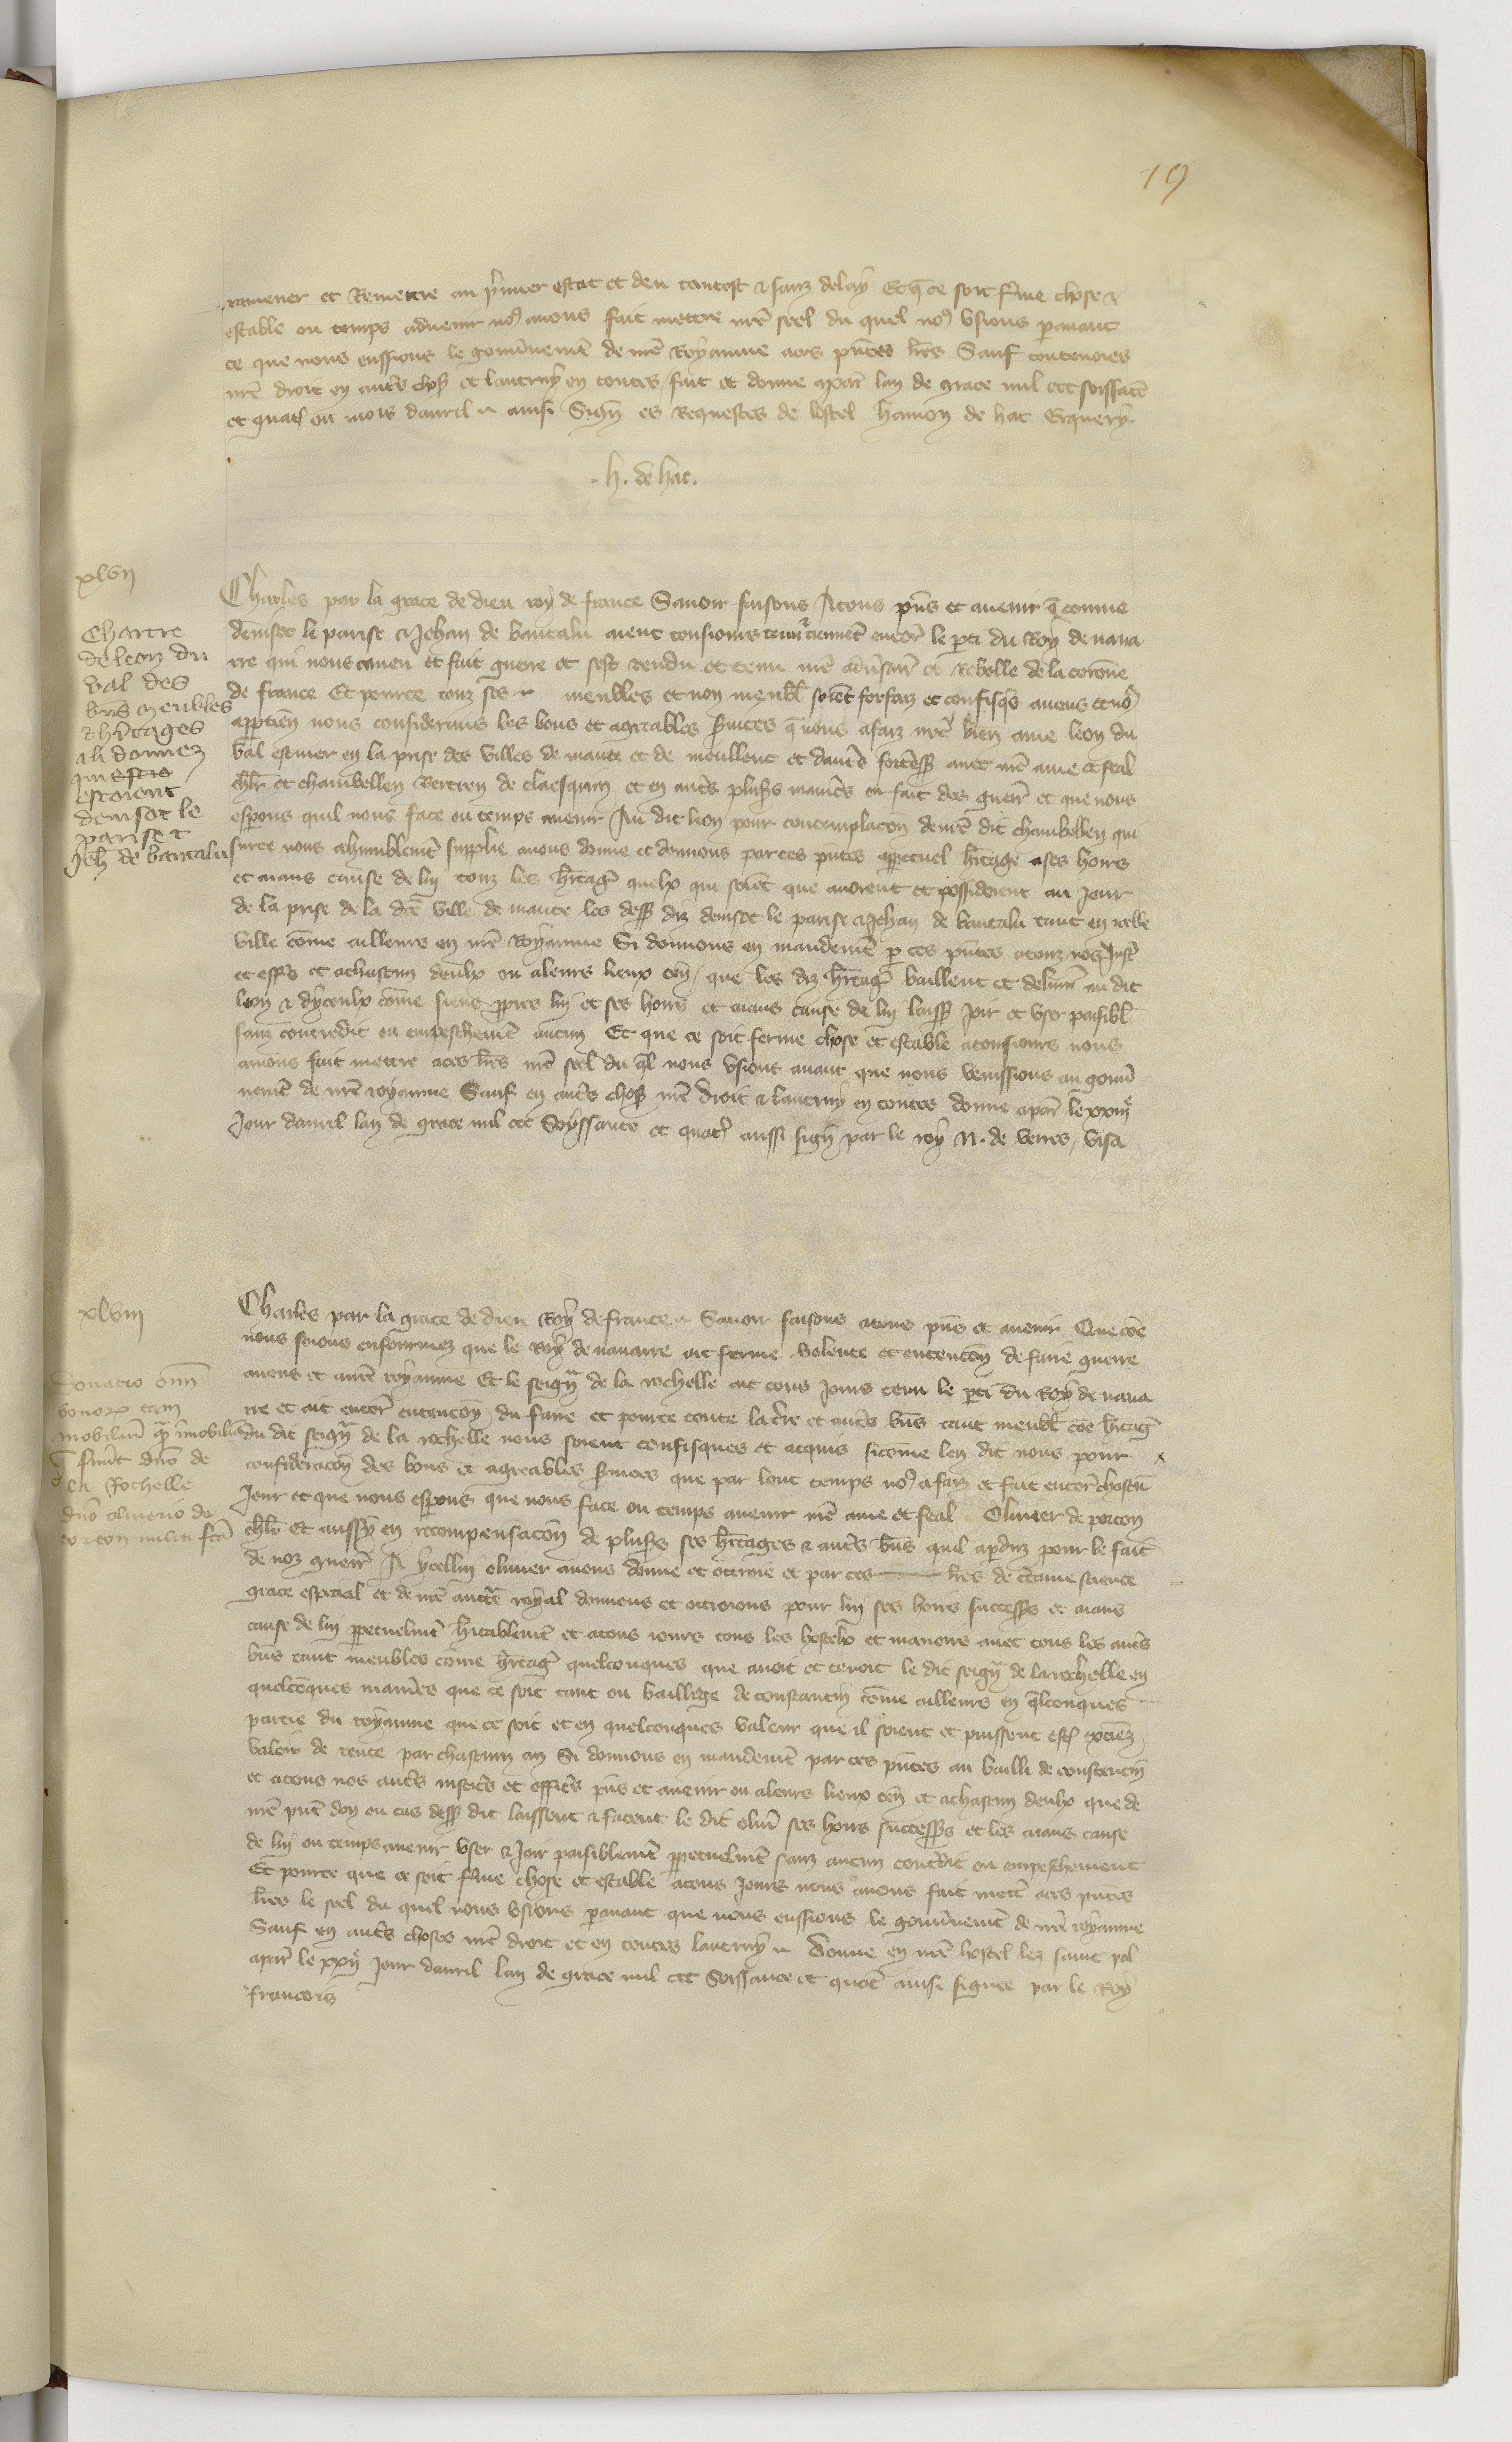 19
ramener et Remettre au p̃mier estat et deu tantost & sanz delay Et q̃ ce soit f̃me chose &
estable ou temps advenir no9 avons fait mettre nr̃e seel du quel no9 usions p avant
ce que nous eussions le gouv̾nemẽt de nr̃e Royaume a ces p̃ntes lr̃es Sauf toutevoies
nr̃e droit en autr̾s choſ et lautruy en toutes / fait et donne a par̾ lan de grace mil ccc soissãte
et quat̾ ou mois davril ainsi Sign̾ es Requestes de lostel hamon de hac Erquery
. h. de hac.
xlvii
Chartre
de leon du
val des
bn̾s meubles
& h̾itages
a li donnez
qui estre
estoient
denisot le
parise &
Jeh̃ de bantalu
Charles par la grace de dieu roy de france Savoir faisons A tous p̃ns et avenir q̃ comme
denisot le parise & Jehan de bantalu aient tousjours tenu & tiennẽt encor̾ le p̃ti du Roy de nava
rre qui nous a meu et fait guerre et sest rendu et tenu nr̃e adv̾sair̾ et Rebelle de la coronne
de france Et pource touz ses meubles et non meubl̾ soiẽt forfaiz et confisq̾s a nous et no9
app̃tieñ nous considerans les bons et agreables s̾vices q̃ nous a faiz nr̃e bien ame leon du
val escuier en la prise des villes de mante et de meullent et dautr̾s fort̾ess avec nr̃e ame et feal
ch̃lr et chambellen Bertren de claesquin et en autr̾s plus̾s manier̾s ou fait des guerr̾ et que nous
esperons quil nous face ou temps avenir Au dit leon pour contemplacõn de nr̃e dit chambellen qui
surce nous a humblemẽt supplie avons donne et donnons par ces p̃ntes a p̾petuel h̾itage a ses hoirs
et aians cause de lui touz les h̾itag̾ quelx qui soiẽt que avoient et possidoient au jour
de la prise de la dit̾e ville de mante les dess̾ diz denisot le parise & Jehan de bantalu tant en icelle
ville cõme ailleurs en nr̃e Royaume Si donnons en mandemẽt p ces p̃ntes a touz noz Just̾
et offic̾s et a chascun deulx ou a leurs lieux teñ / que les diz h̾itag̾ baillent et delivr̾ au dit
leon & dyceulx cõme siens p̃pres lui et ses hoirs et aians cause de lui laiss̾ joir et user paisibl̾
sanz contredit ou empeschemẽt aucun Et que ce soit ferme chose et estable a tousjours nous
avons fait mettre a ces lr̃es nr̃e seel du q̃l nous usions avant que nous venissions au gouv̾
nemẽt de nr̃e royaume Sauf en autr̾s choſ nr̃e droit & lautruy en toutes donne a par̾ le xxiiie
Jour davril lan de grace mil ccc Soyssante et quat̾ aussi sign̾ par le roy N. de verres / visa
xlviii
Donacio om̃
bonor̃ tam
mobiliũ q̃ immobiliũ
q̃ fuer̾t dñi de
la Rochelle
dño oliverio de
porcon militi fc̃a
Charles par la grace de dieu Roy de france Savoir faisons a tous p̃ns et avenir Que cõe
nous soions enfourmez que le Roy de navarre ait ferme volente et entencõn de faire guerre
a nous et a nr̃e royaume Et le seign̾ de la rochelle ait tous jours tenu le p̃ti du Roy de nava
rre et ait encor̾ entencõn du faire et pource toute la t̾re et autr̾s bñs tant meubl̾ cõe h̾itag̾
du dit seign̾ de la rochelle nous soient confisques et acquis sicõme len dit nous pour
consideracõn des bons et agreables s̾vices que par lonc temps no9 a faiz et fait encor̾ chascũ
Jour et que nous esperons que nous face ou temps avenir nr̃e ame et feal Olivier de porcon
ch̃lr Et aussy en recompensacõn de plus̾s ses h̾itages & autr̾s bñs quil a p̾duz pour le fait
de noz guerr̾ A ycellui olivier avons donne et octroie et par ces lr̃es de c̾taine science
grace especial et de nr̃e auct̾e royal donnons et octroions pour lui ses hoirs success̾s et aians
cause de lui p̾petuelmẽt h̾itablemẽt et a tous jours tous les hostelx et manoirs avec tous les autr̾s
bñs tant meubles cõme h̾itag̾ quelconques que avoit et tenoit le dit seign̾ de la rochelle en
quelcõques manier̾s que ce soit tant ou bailliage de constantin cõme ailleurs en q̃lconques
partie du royaume que ce soit et en quelconques valeur que il soient et puissent est̾
valoir de rente par chascun an Si donnons en mandemẽt par ces p̃ntes au bailli de constentin
et a tous nos autr̾s justic̾s et offic̾s p̃ns et avenir ou a leurs lieux teñ et a chascun deulx que de
nr̃e p̃nt don ou cas dess̾ dit laissent & facent le dit oliv̾ ses hoirs success̾s et les aians cause
de lui ou temps avenir user & joir paisiblemẽt p̾petuelmẽt sanz aucun cont̾dit ou empeschement
Et pource que ce soit f̾me chose et estable a tous jours nous avons fait mett̾ a ces p̃ntes
lr̃es le seel du quel nous usions p avant que nous eussions le gouv̾nemẽt de nr̃e royaume
Sauf en autr̾s choses nr̃e droit et en toutes lautruy Donne en nr̃e hostel lez saint pol
a par̾ le xxve Jour davril lan de grace mil ccc Soissante et quat̾ ainsi signee par le Roy
francois